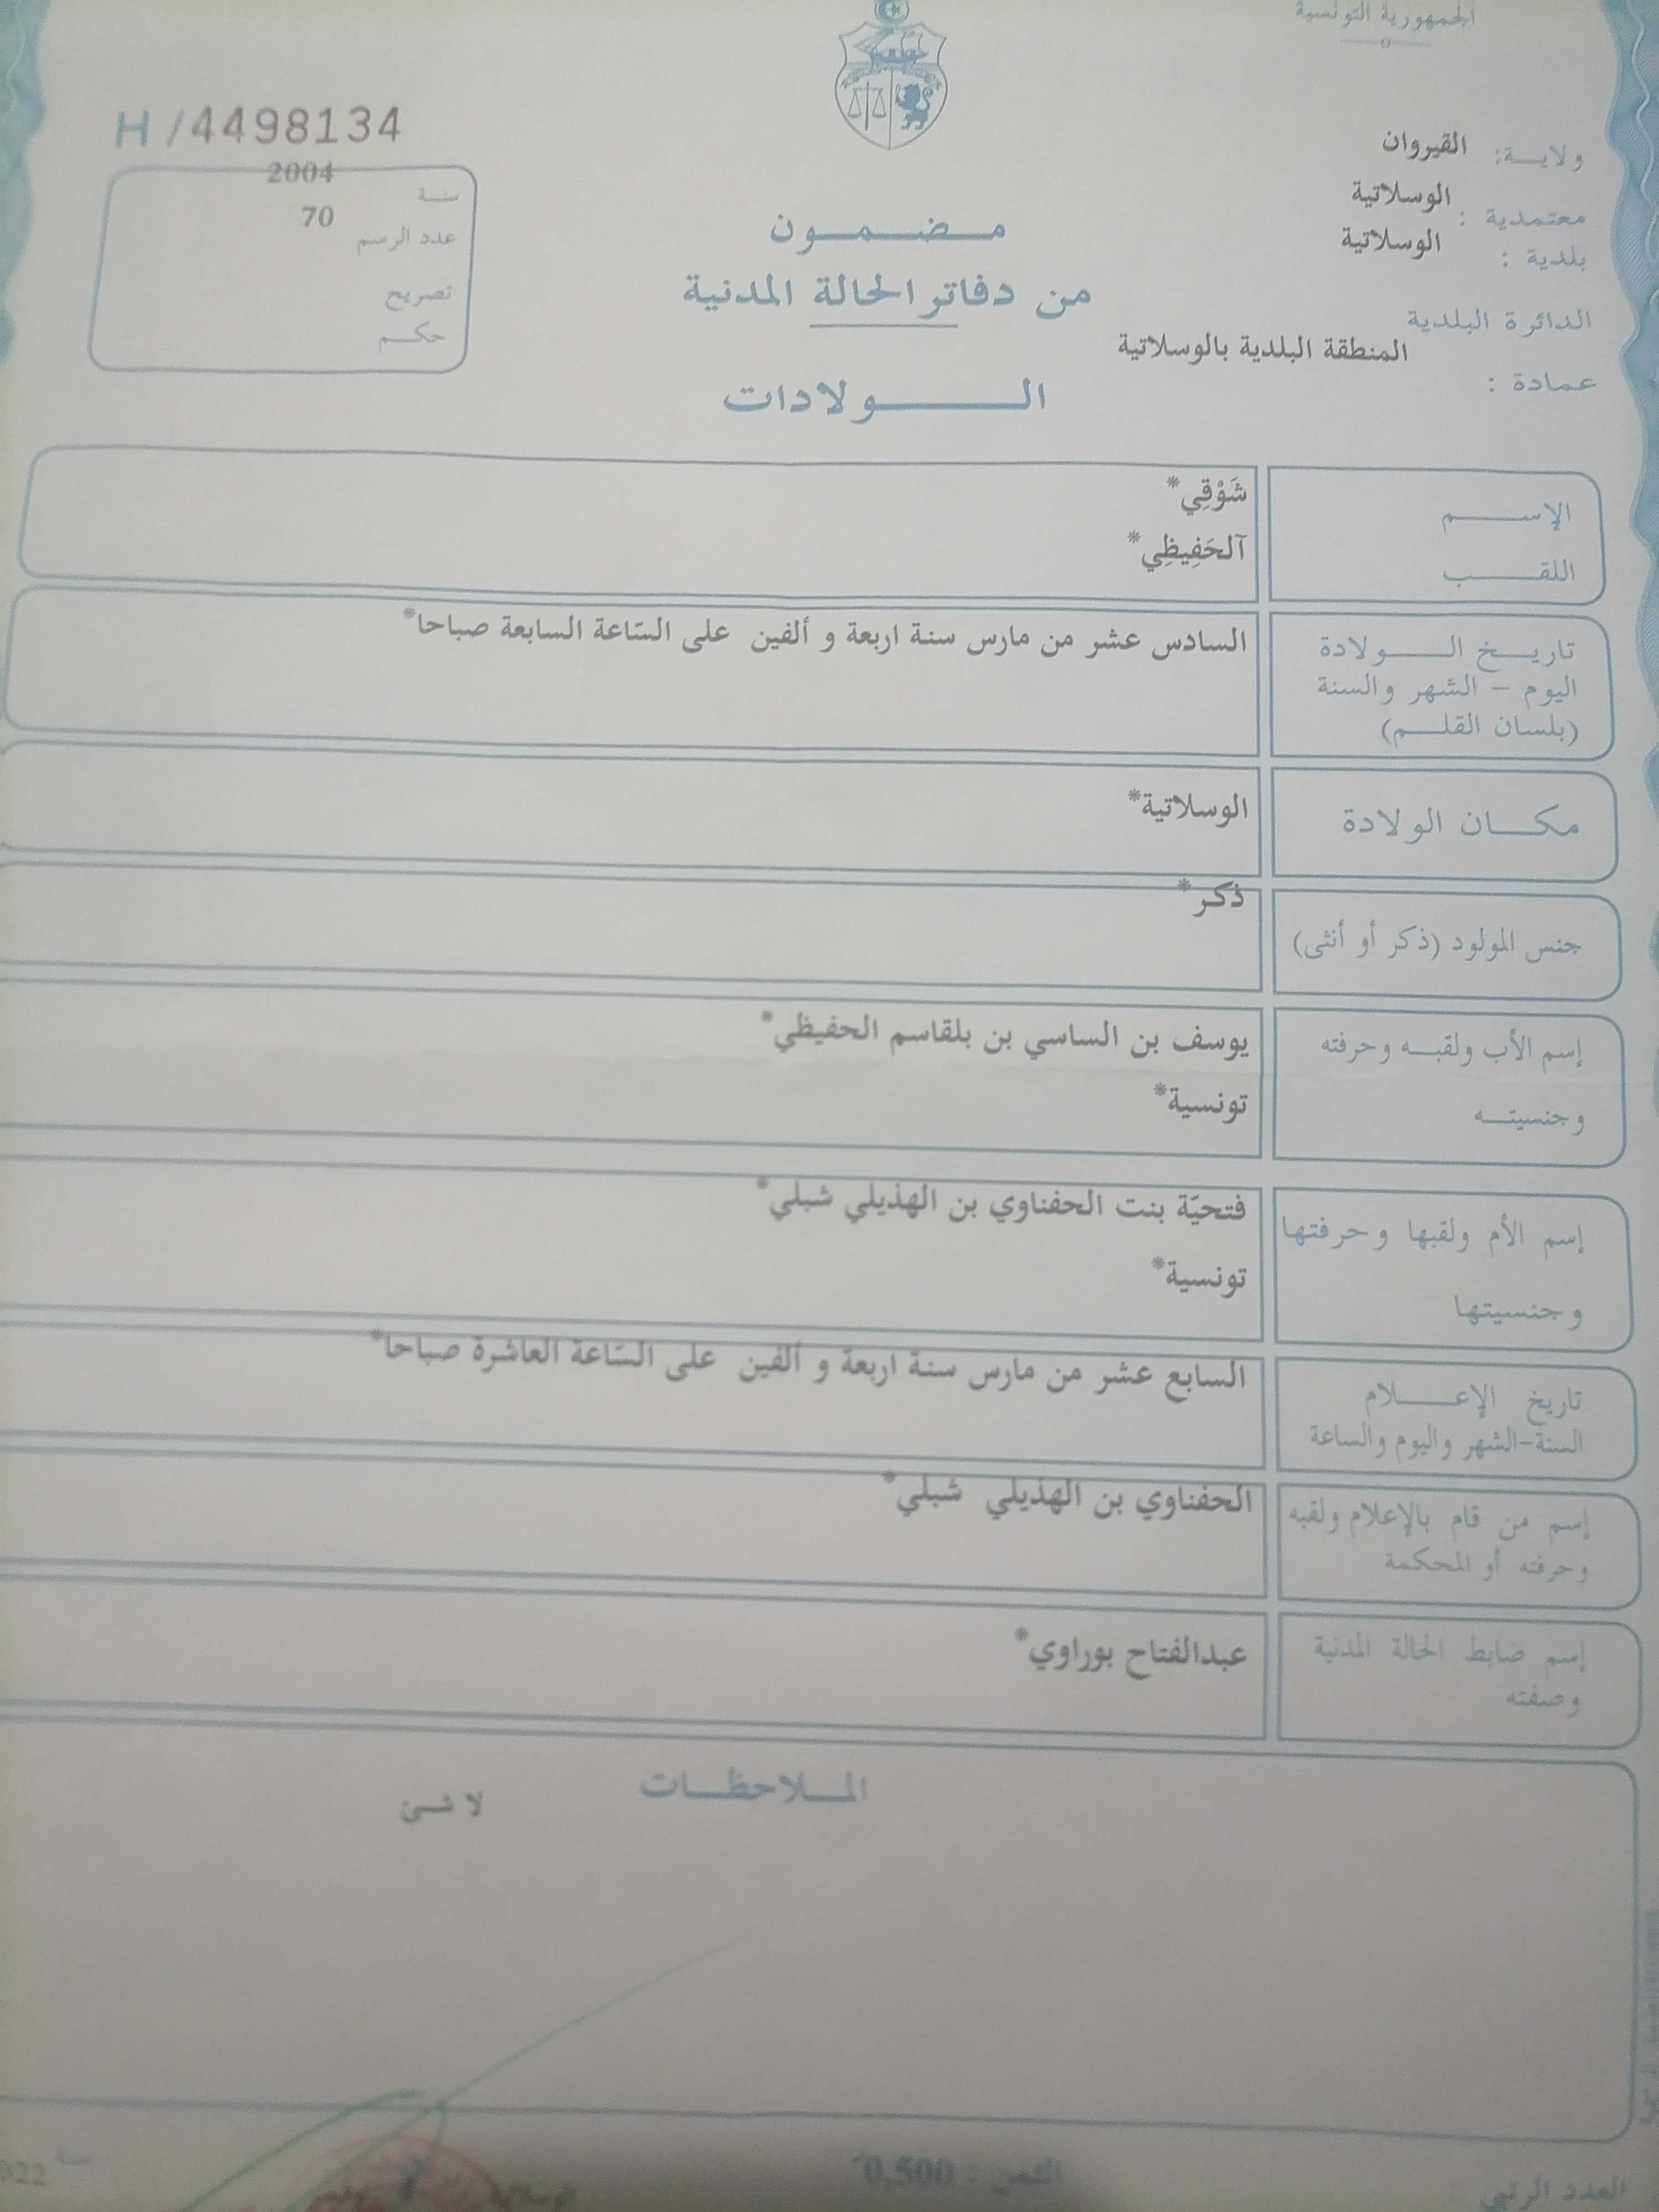 الجمهورية التونسية
H/4498134
ولايــة: القيروان
معتمدية : الوسلاتية
بلدية : الوسلاتية
الدائرة البلدية
المنطقة البلدية بالوسلاتية
عمادة :
سنة 2004
عدد الرسم 70
تصريح
حكم
مضمون
من دفاتر الحالة المدنية
الولادات
الإسم
شَوْقِي*
اللقب
آلحَفِيظِي*
تاريخ الولادة
اليوم - الشهر والسنة
(بلسان القلم)
السادس عشر من مارس سنة اربعة و ألفين على السّاعة السابعة صباحا*
مكان الولادة
الوسلاتية*
جنس المولود (ذكر أو أنثى)
ذكر*
إسم الأب ولقبه وحرفته
وجنسيته
يوسف بن الساسي بن بلقاسم الحفيظي*
تونسية*
إسم الأم ولقبها وحرفتها
وجنسيتها
فتحيّة بنت الحفناوي بن الهذيلي شبلي*
تونسية*
تاريخ الإعلام
السنة-الشهر واليوم والساعة
السابع عشر من مارس سنة اربعة و ألفين على السّاعة العاشرة صباحا*
إسم من قام بالإعلام ولقبه
وحرفته أو المحكمة
الحفناوي بن الهذيلي شبلي*
إسم ضابط الحالة المدنية
وصفته
عبدالفتاح بوراوي*
الملاحظات
لا شئ
العدد الرتبي :
الثمن : 0.500